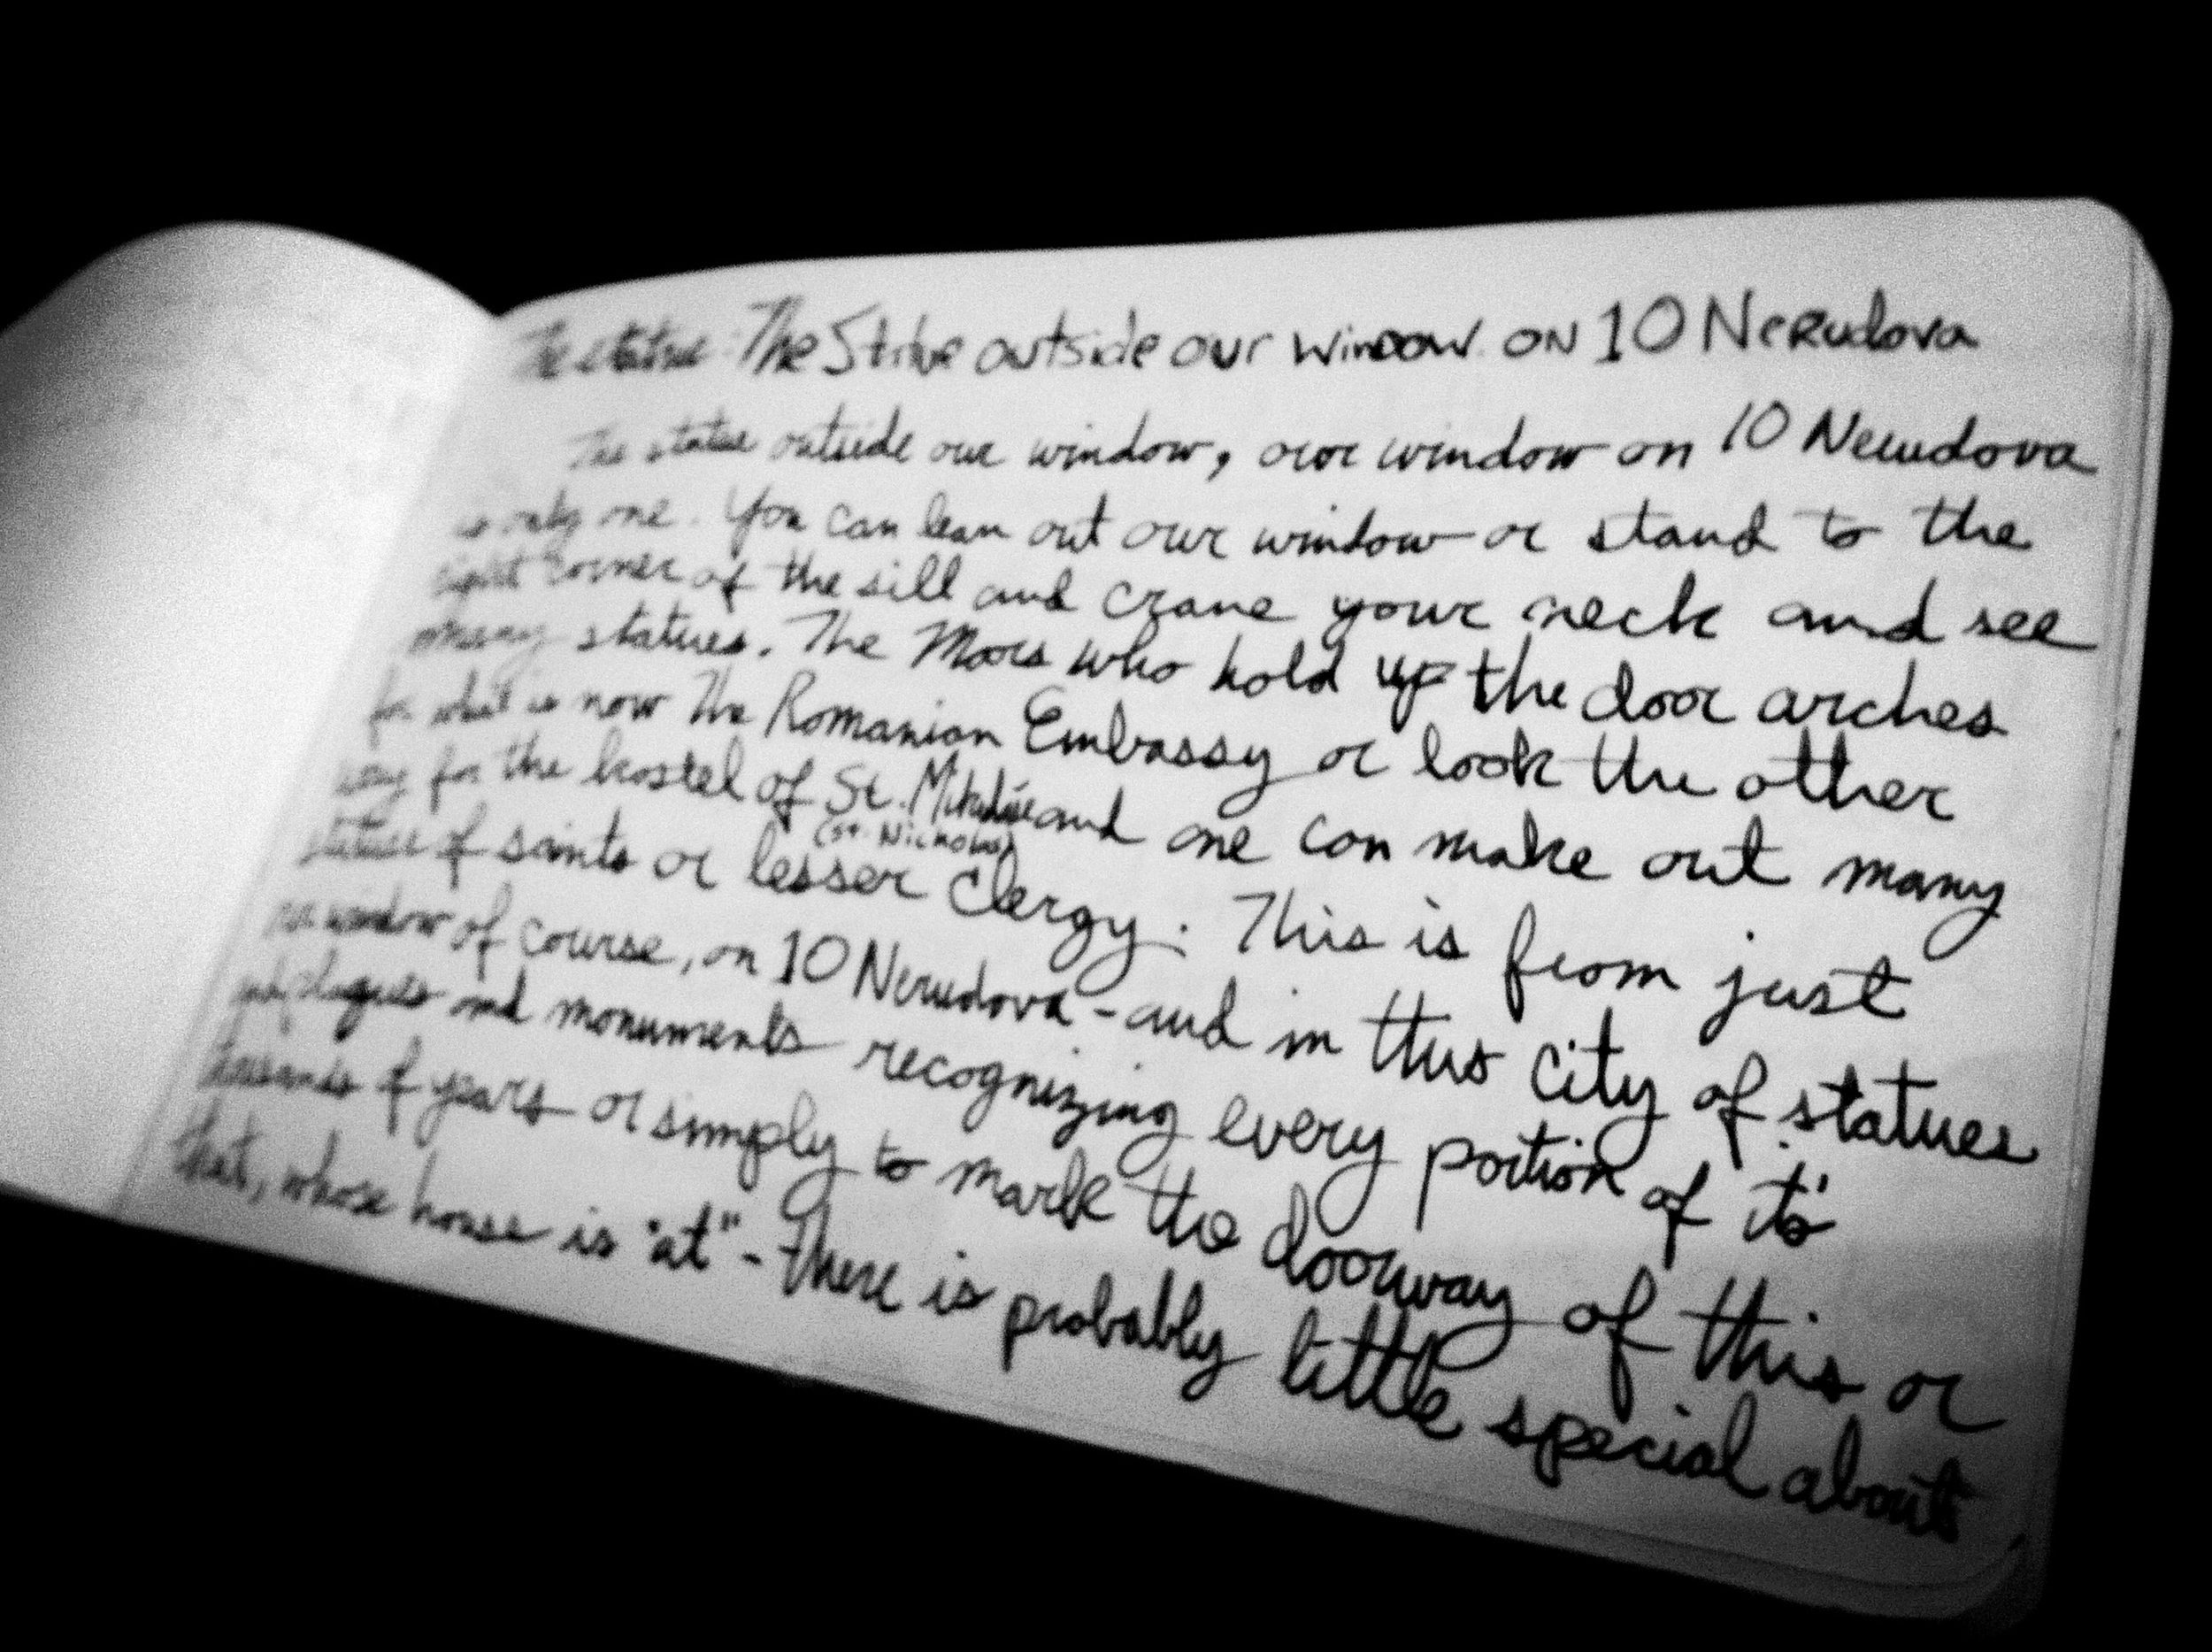 The statue: The Statue outside our window on 10 Nerudova
The statue outside our window, our window on 10 Nerudova
is only one. You can lean out our window or stand to the
right corner of the sill and crane your neck and see
many statues. The Moors who hold up the door arches
for what is now the Romanian Embassy or look the other
way for the hostel of St. and one can make out many
(St. Nicholas)
statues of saints or lesser clergy. This is from just
our window of course, on 10 Nerudova - and in this city of statues
plagues and monuments recognizing every portion of it's
thousands of years or simply to mark the doorway of this or
that, whose house is "at" - there is probably little special about